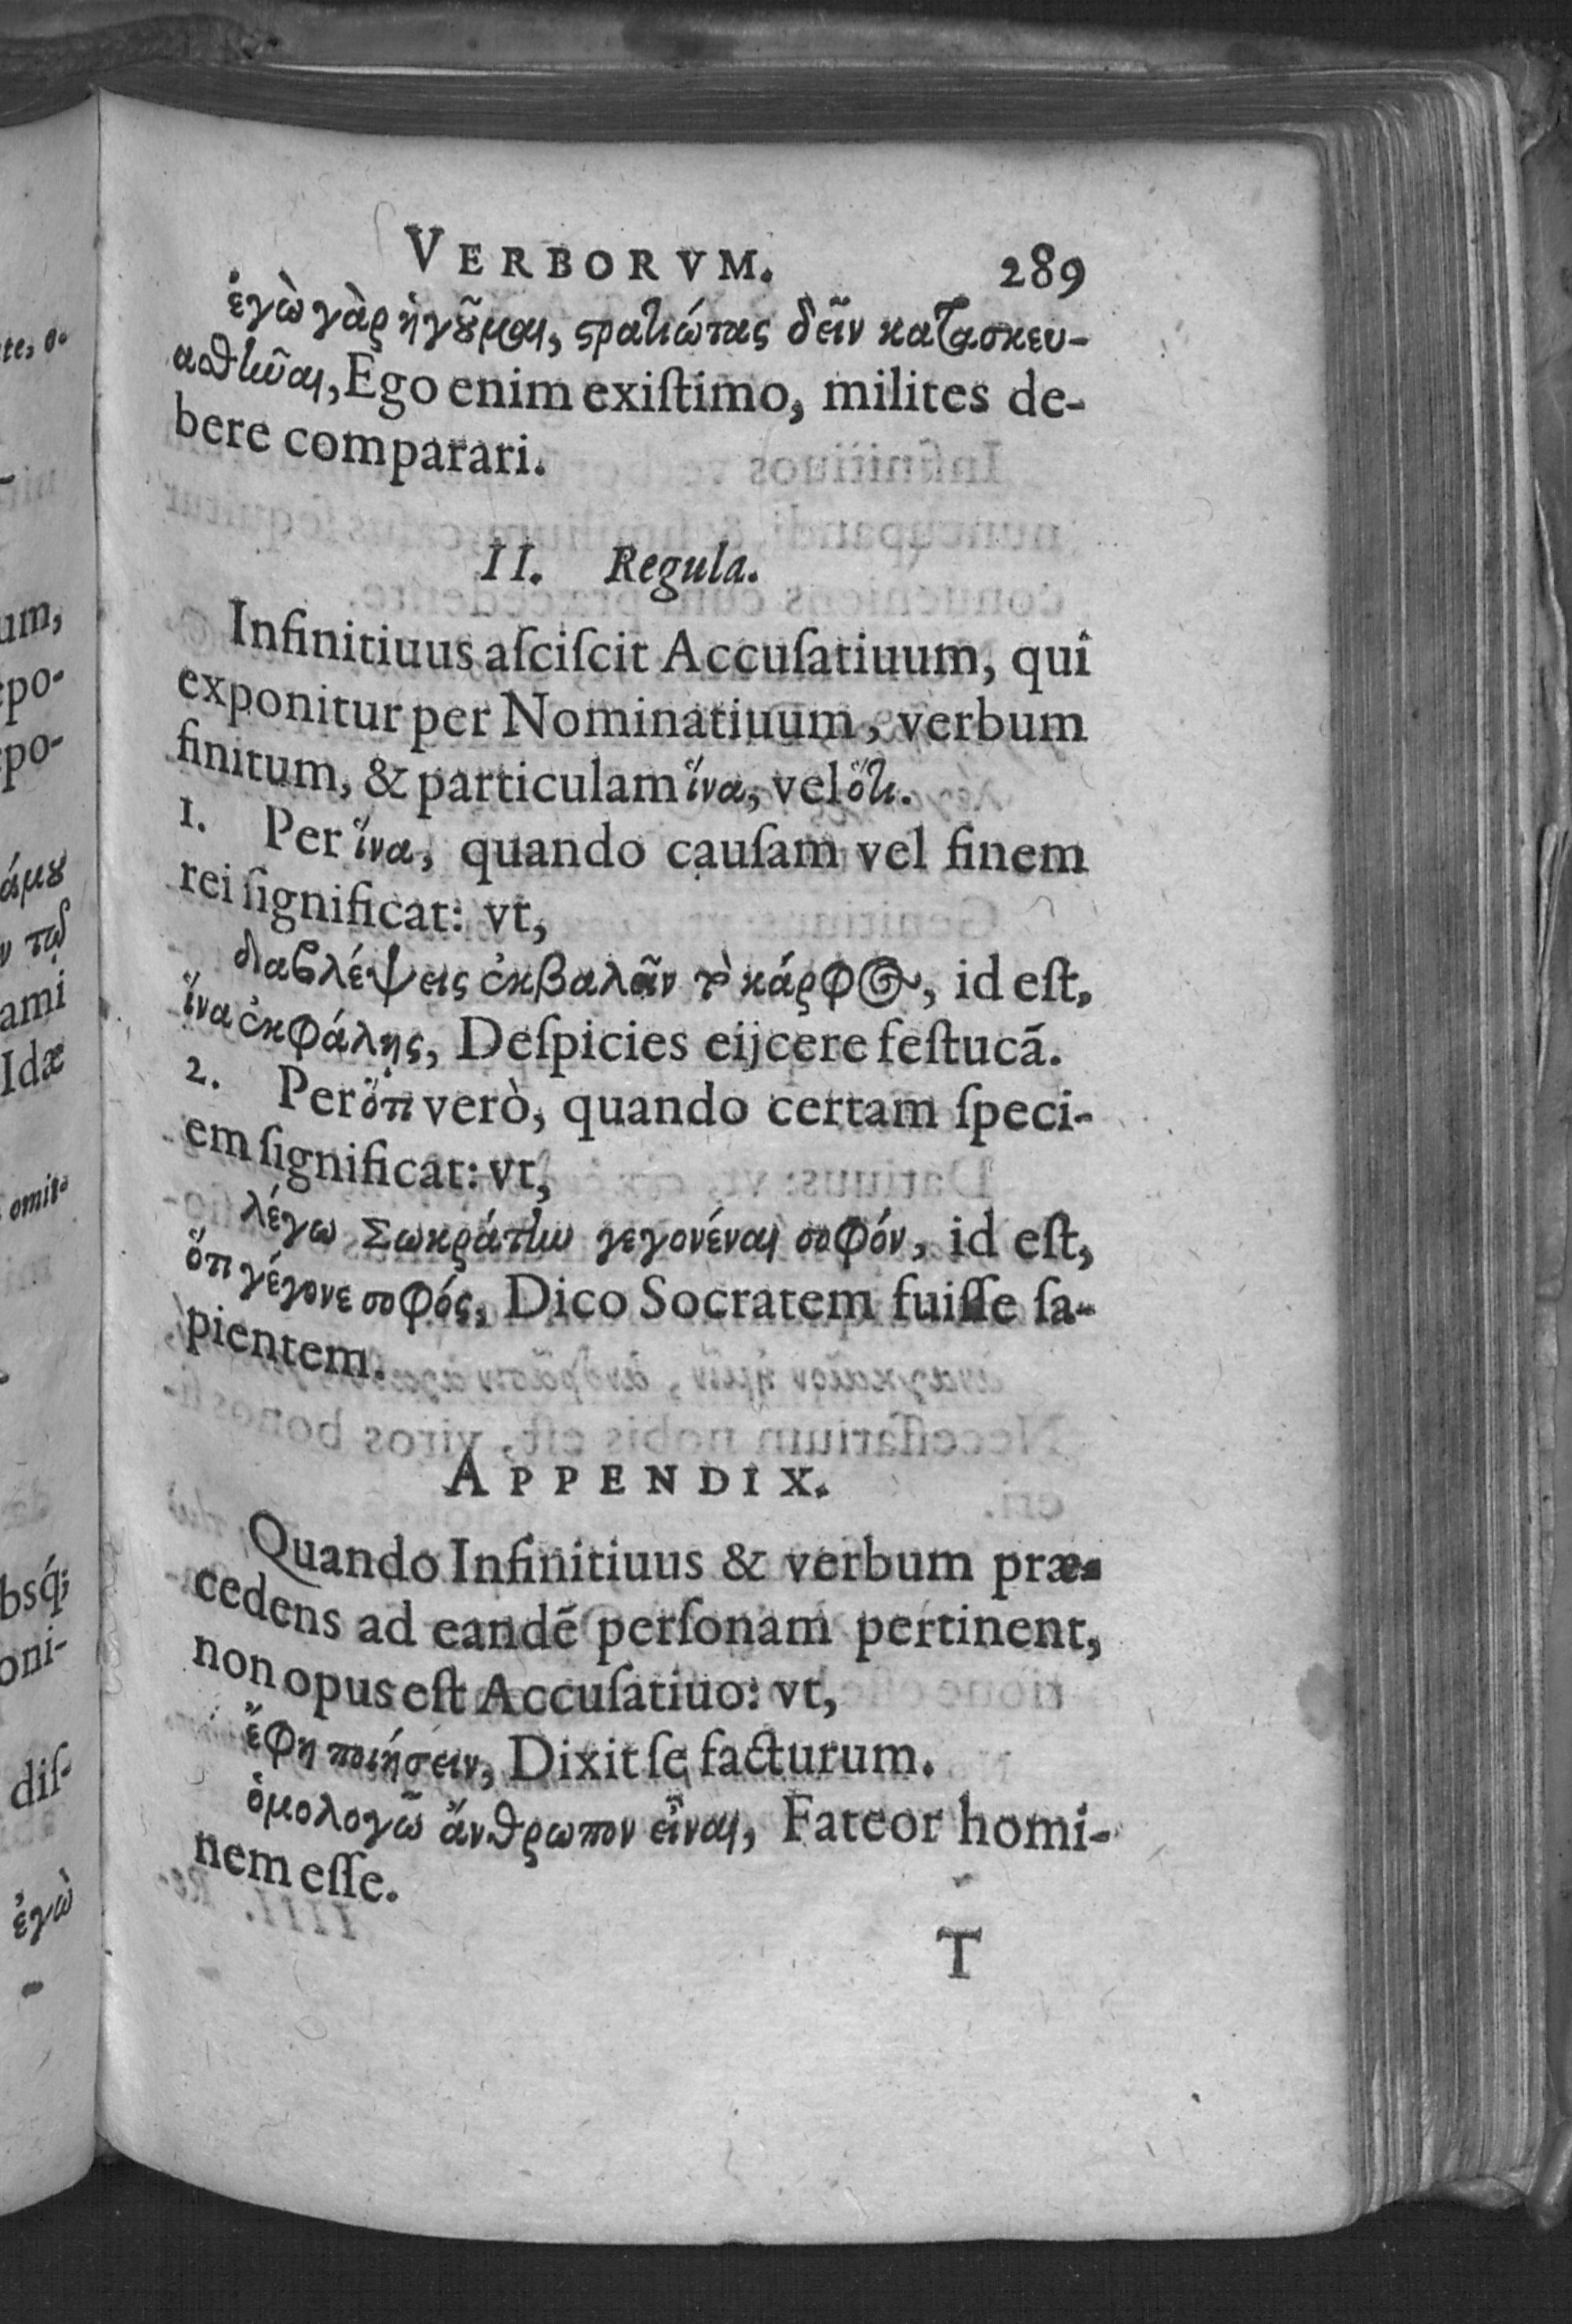 VERBORVM. 289
ἐγὼ γὰρ ἡγοῦμαι, στρατιώτας δεῖν κατασκευ-
ασθῆναι, Ego enim exiſtimo, milites de-
bere comparari.
II. Regula.
Infinitiuus aſciſcit Accuſatiuum, qui
exponitur per Nominatiuum, verbum
finitum, & particulam ἵνα, vel ὅτι.
1. Per ἵνα, quando cauſam vel finem
rei ſignificat: vt,
διαβλέψεις ἐκβαλεῖν τὸ κάρφος, id eſt,
ἵνα ἐκφάλῃς, Deſpicies eijcere feſtucã.
2. Per ὅτι verò, quando certam ſpeci-
em ſignificat: vt,
λέγω Σωκράτην γεγονέναι σοφόν, id eſt,
ὅτι γέγονε σοφός, Dico Socratem fuiſſe ſa-
pientem.
APPENDIX.
Quando Infinitiuus & verbum præ-
cedens ad eandẽ perſonam pertinent,
non opus eſt Accuſatiuo: vt,
ἔφη ποιήσειν, Dixit ſe facturum.
ὁμολογῶ ἄνθρωπον εἶναι, Fateor homi-
nem eſſe.
T